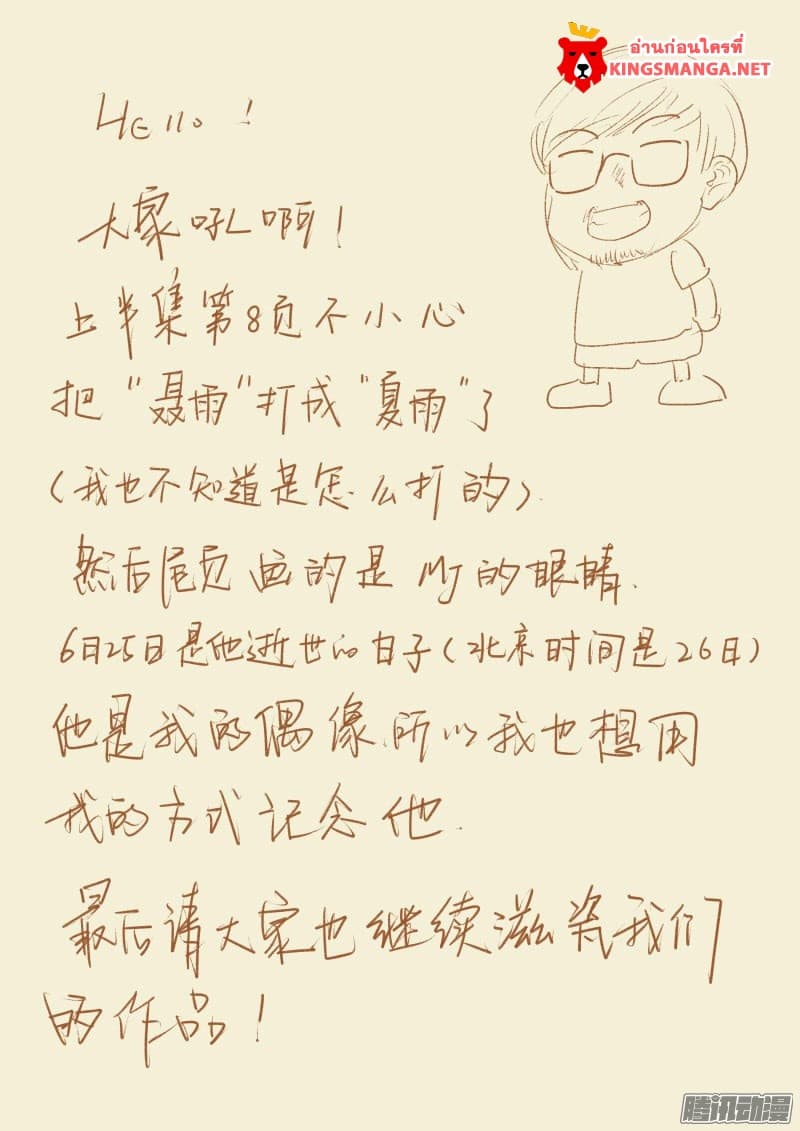 อ่านก่อนใครที่
KINGSMANGA.NET
Hello!
大家吼啊!
上半集第8页不小心
把"聂雨"打成"夏雨"了
(我也不知道是怎么打的).
然后尾页画的是MJ的眼睛.
6日25日是他逝世的日子(北京时间是26日)
他是我的偶像.所以我也想用
我的方式记念他.
最后请大家也继续滋瓷我们
的作品!
腾讯动漫